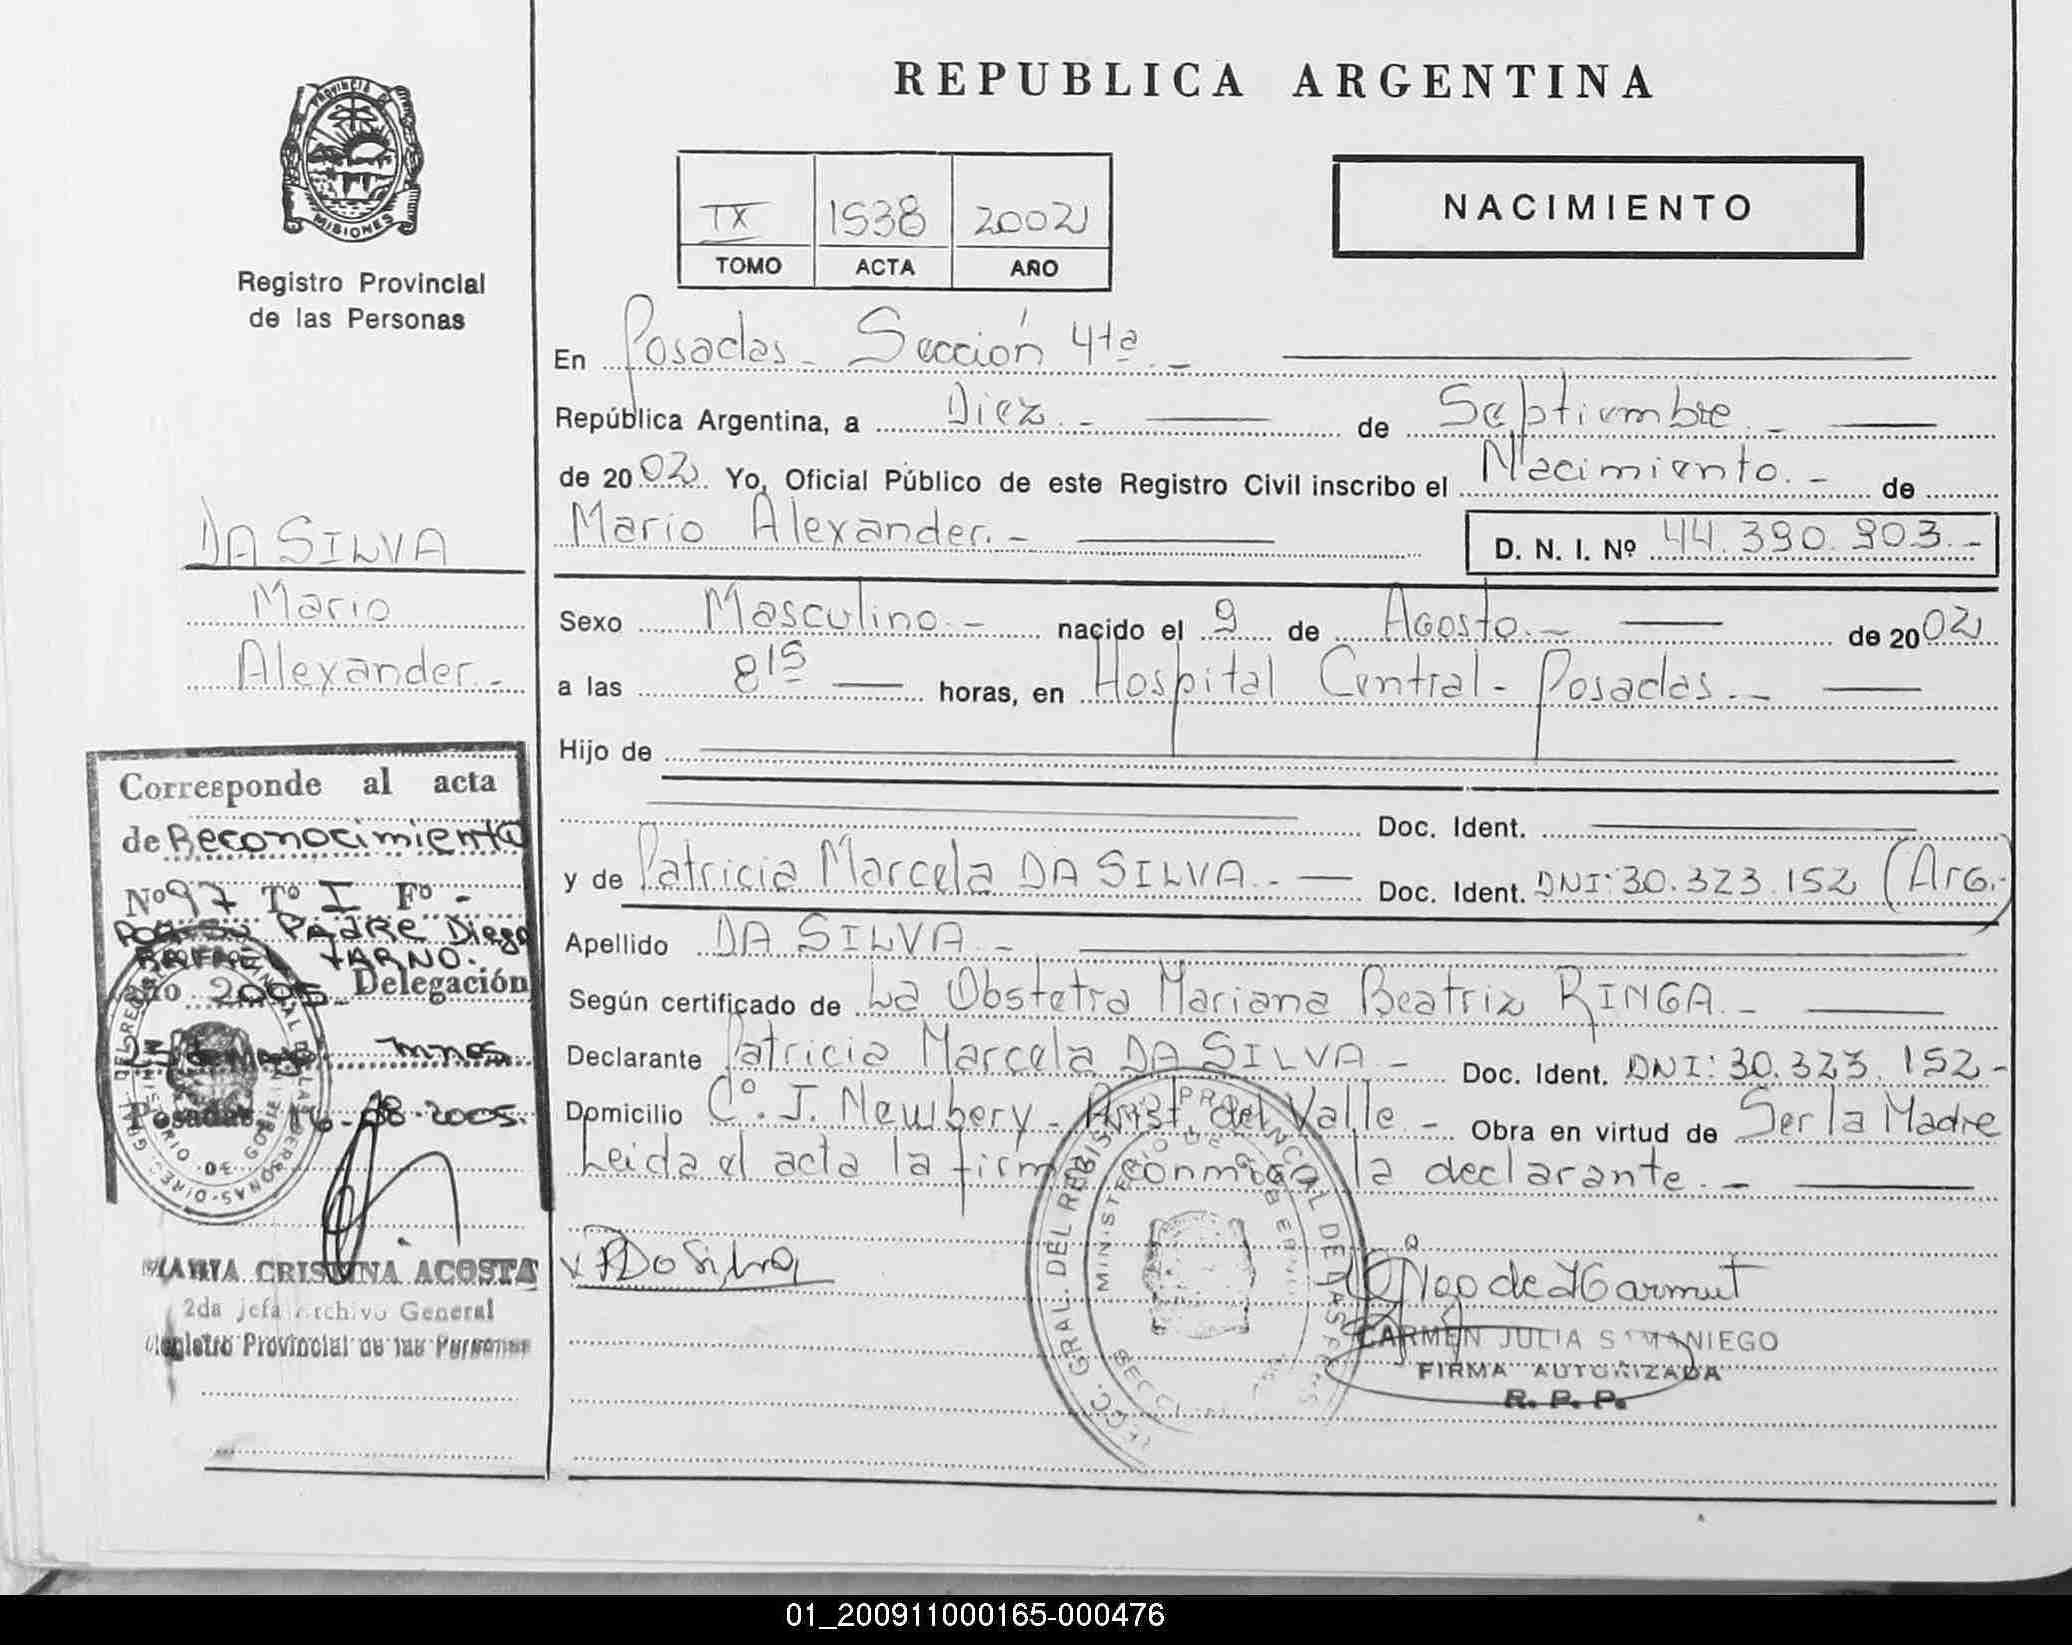 REPUBLICA ARGENTINA
PROVINCIA DE
MISIONES
Registro Provincial
de las Personas
NACIMIENTO
IX 1538 2002
TOMO ACTA AÑO
En Posadas - Sección 4ta. -
República Argentina, a Diez. - de Septiembre. -
de 2002. Yo, Oficial Público de este Registro Civil inscribo el Nacimiento. - de
Mario Alexander. - D. N. I. Nº 44.390.903. -
Sexo Masculino. - nacido el 9 de Agosto. - de 2002
a las 8 15 horas, en Hospital Central - Posadas. -
Hijo de
Doc. Ident.
y de Patricia Marcela DA SILVA. - Doc. Ident. DNI: 30.323.152 (Arg.-)
Apellido DA SILVA. -
Según certificado de La Obstetra Mariana Beatriz RINGA. -
Declarante Patricia Marcela DA SILVA - Doc. Ident. DNI: 30.323.152 -
Domicilio Cº. J. Newbery - Arist. del Valle - Obra en virtud de Ser la Madre
Leida el acta la firma conmigo la declarante. -
DA SILVA
Mario
Alexander. -
Corresponde al acta
de Reconocimiento
Nº 97 Tº I Fº -
Por su Padre Diego
RAFAEL
año 2005 Delegación
Posadas 16-08-2005.
MARIA CRISTINA ACOSTA
2da Jefa Archivo General
Registro Provincial de las Personas
P Da Silva
CARMEN JULIA SAMANIEGO
FIRMA AUTORIZADA
R. P. P.
01_200911000165-000476